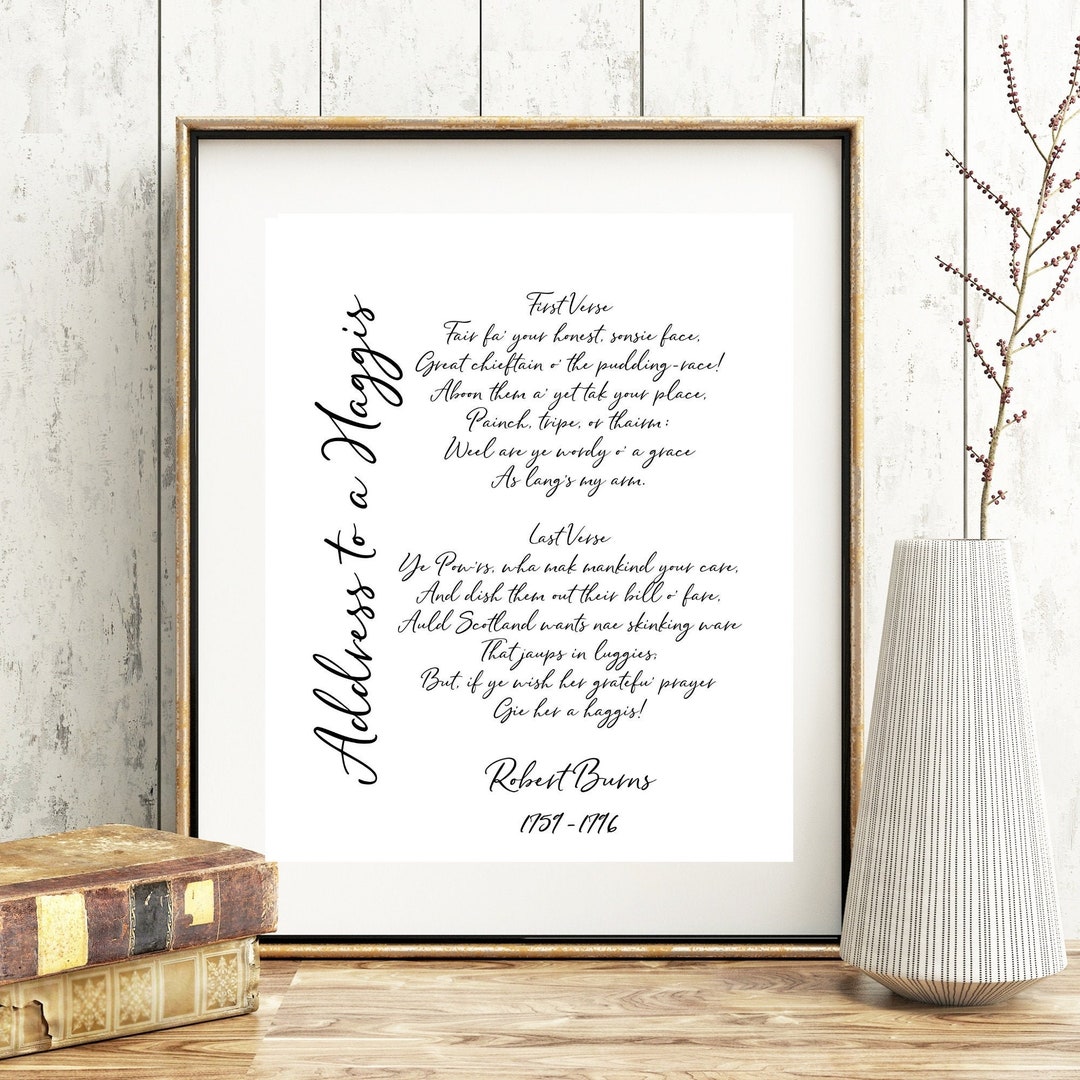 Address to a Haggis
First Verse
Fair fa' your honest, sonsie face,
Great chieftain o' the pudding-race!
Aboon them a' yet tak your place,
Painch, tripe, or thairm:
Weel are ye wordy o' a grace
As lang's my arm.
Last Verse
Ye Pow'rs, wha mak mankind your care,
And dish them out their bill o' fare,
Auld Scotland wants nae skinking ware
That jaups in luggies;
But, if ye wish her gratefu' prayer
Gie her a haggis!
Robert Burns
1759 - 1796